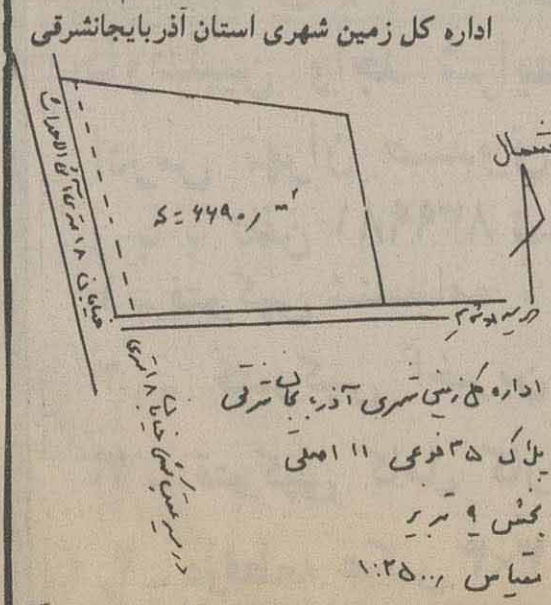 اداره کل زمین شهری استان آذربایجانشرقی
شمال
S = ۶۶۹۰٫ m²
خیابان ۱۸ متری آتی الاحداث
در مسیر عقب نشینی خیابان ۱۸ متری
اداره کل زمین شهری آذربایجان شرقی
پلاک ۳۵ فرعی ۱۱ اصلی
بخش ۹ تبریز
مقیاس ۱:۲۵۰۰